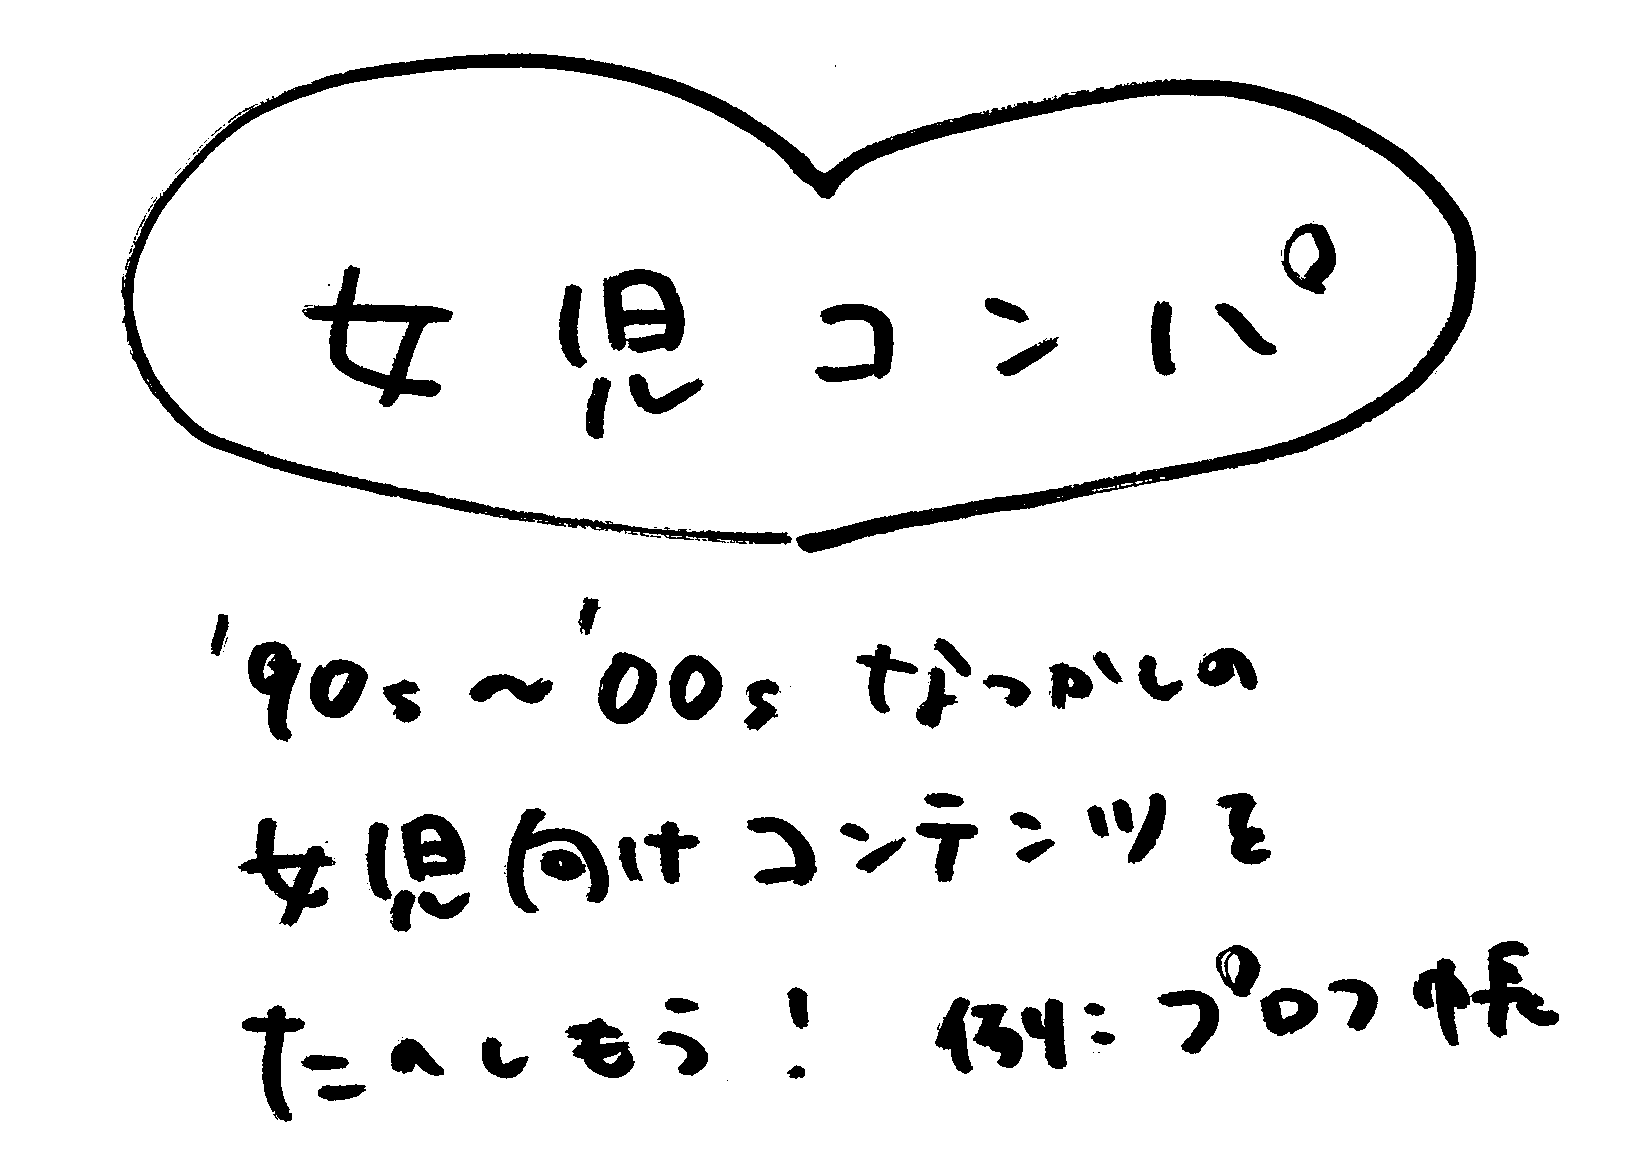 女児コンパ
'90s～'00s なつかしの
女児向けコンテンツを
たのしもう! 例:プロフ帳